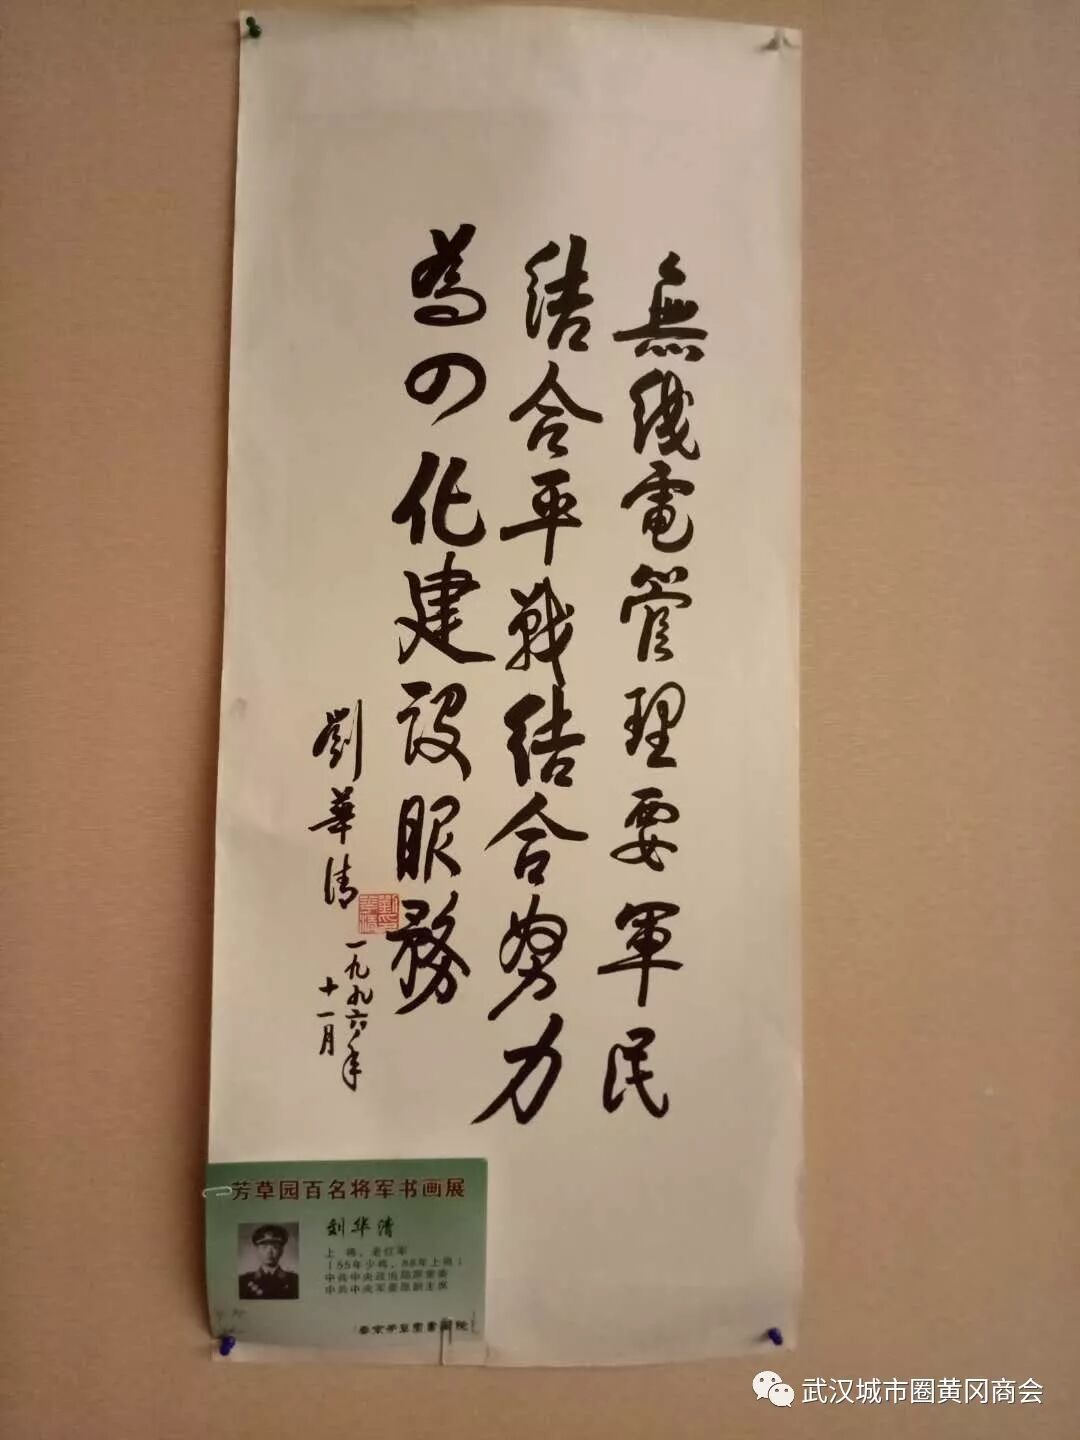 無线電管理要軍民
结合平戰结合努力
為四化建设服務
劉華清
一九九六年
十一月
芳草园百名将军书画展
刘华清
上将、老红军
(55年少将、88年上将)
中共中央政治局原常委
中共中央军委原副主席
武汉城市圈黄冈商会